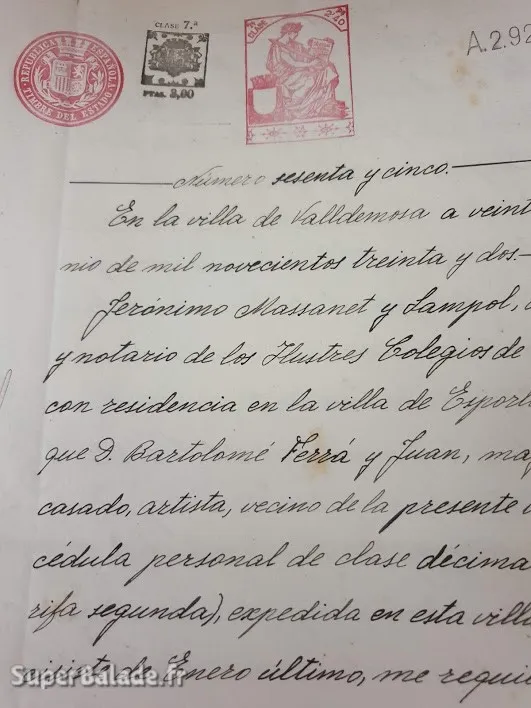 REPUBLICA ESPAÑOLA
TIMBRE DEL ESTADO
CLASE 7.ª
PTAS. 3,00
CLASE
A.2.92
Número sesenta y cinco.
En la villa de Valldemosa a veint
nio de mil novecientos treinta y dos.-
Jerónimo Massanet y Sampol,
y notario de los Ilustres Colegios de
con residencia en la villa de Esporl
que D. Bartolomé Ferrá y Juan, ma
casado, artista, vecino de la presente
cédula personal de clase décima
rifa segunda), expedida en esta villa
de Enero último, me requi
SuperBalade.fr